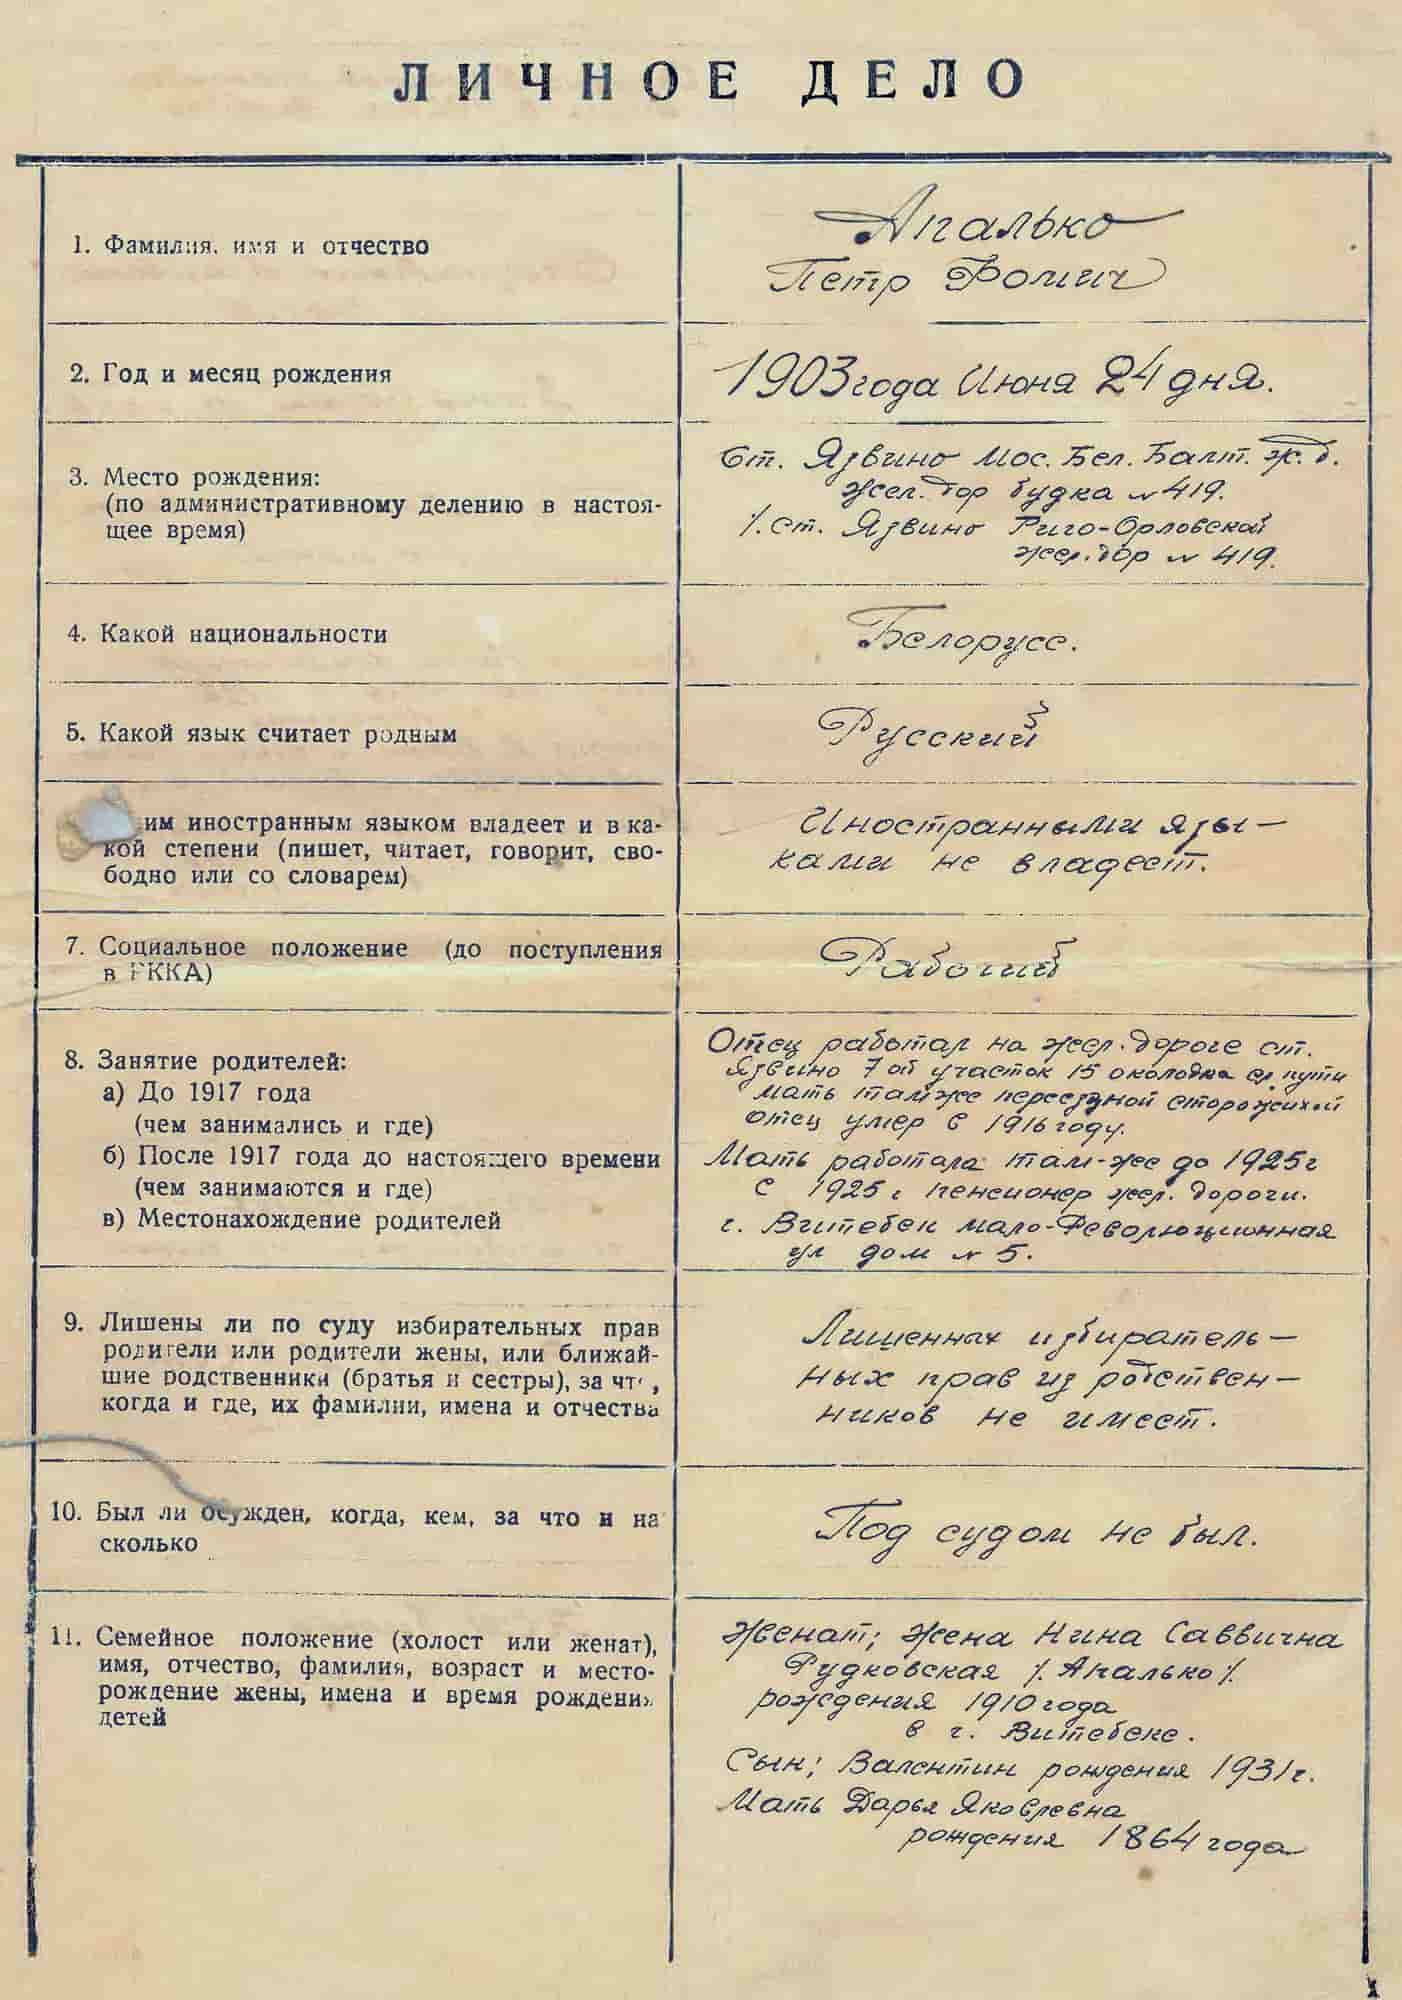 ЛИЧНОЕ ДЕЛО
1. Фамилия, имя и отчество
Апалько
Петр Фомич
2. Год и месяц рождения
1903 года Июня 24 дня.
3. Место рождения:
(по административному делению в настоя-
щее время)
Ст. Язвино Мос. Бел. Балт. ж. д.
жел. дор будка № 419.
/. ст. Язвино Риго-Орловской
жел. дор № 419.
4. Какой национальности
Белорусс.
5. Какой язык считает родным
Русский
им иностранным языком владеет и в ка-
кой степени (пишет, читает, говорит, сво-
бодно или со словарем)
Иностранными язы-
ками не владеет.
7. Социальное положение (до поступления
в РККА)
Рабочий
8. Занятие родителей:
а) До 1917 года
(чем занимались и где)
б) После 1917 года до настоящего времени
(чем занимаются и где)
в) Местонахождение родителей
Отец работал на жел. дороге ст.
Язвино 7ой участок 15 околодка пути
мать там же переездной сторожихой
отец умер в 1916 году.
Мать работала там-же до 1925 г
с 1925 г пенсионер жел. дороги.
г. Витебск мало-Революционная
ул дом № 5.
9. Лишены ли по суду избирательных прав
родители или родители жены, или ближай-
шие родственники (братья и сестры), за что,
когда и где, их фамилии, имена и отчества
Лишенных избиратель-
ных прав из родствен-
ников не имеет.
10. Был ли осужден, когда, кем, за что и на
сколько
Под судом не был.
11. Семейное положение (холост или женат),
имя, отчество, фамилия, возраст и место-
рождение жены, имена и время рождения
детей
Женат; жена Нина Саввична
Рудковская /. Апалько /.
рождения 1910 года
в г. Витебске.
Сын; Валентин рождения 1931 г.
Мать Дарья Яковлевна
рождения 1864 года